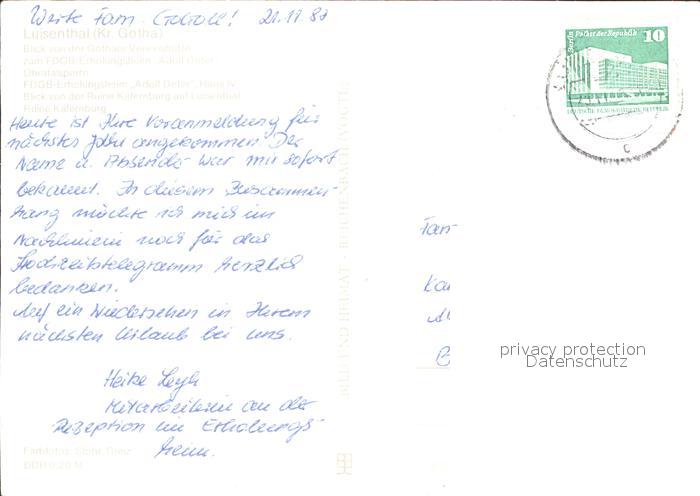 Werte Fam.
Luisenthal (Kr. Gotha)
Blick von der Gothaer Vereinshütte
zum FDGB-Erholungsheim „Adolf Deter“
Ohratalsperre
FDGB-Erholungsheim „Adolf Deter“, Haus IV
Blick von der Ruine Käfernburg auf Luisenthal
Ruine Käfernburg
Heute ist Ihre Voranmeldung für
nächstes Jahr angekommen. Der
Name u. Absender war mir sofort
bekannt. In diesem Zusammen-
hang möchte ich mich im
Nachhinein noch für das
Hochzeitstelegramm herzlich
bedanken.
Auf ein Wiedersehen in Ihrem
nächsten Urlaub bei uns.
Heike
Mitarbeiterin an der
Rezeption im Erholungs-
heim.
Farbfotos: Stohr, Greiz
DDR 0,20 M
BILD UND HEIMAT · REICHENBACH (VOGTL)
Berlin Palast der Republik
10
DEUTSCHE DEMOKRATISCHE REPUBLIK
c
Fam
privacy protection
Datenschutz